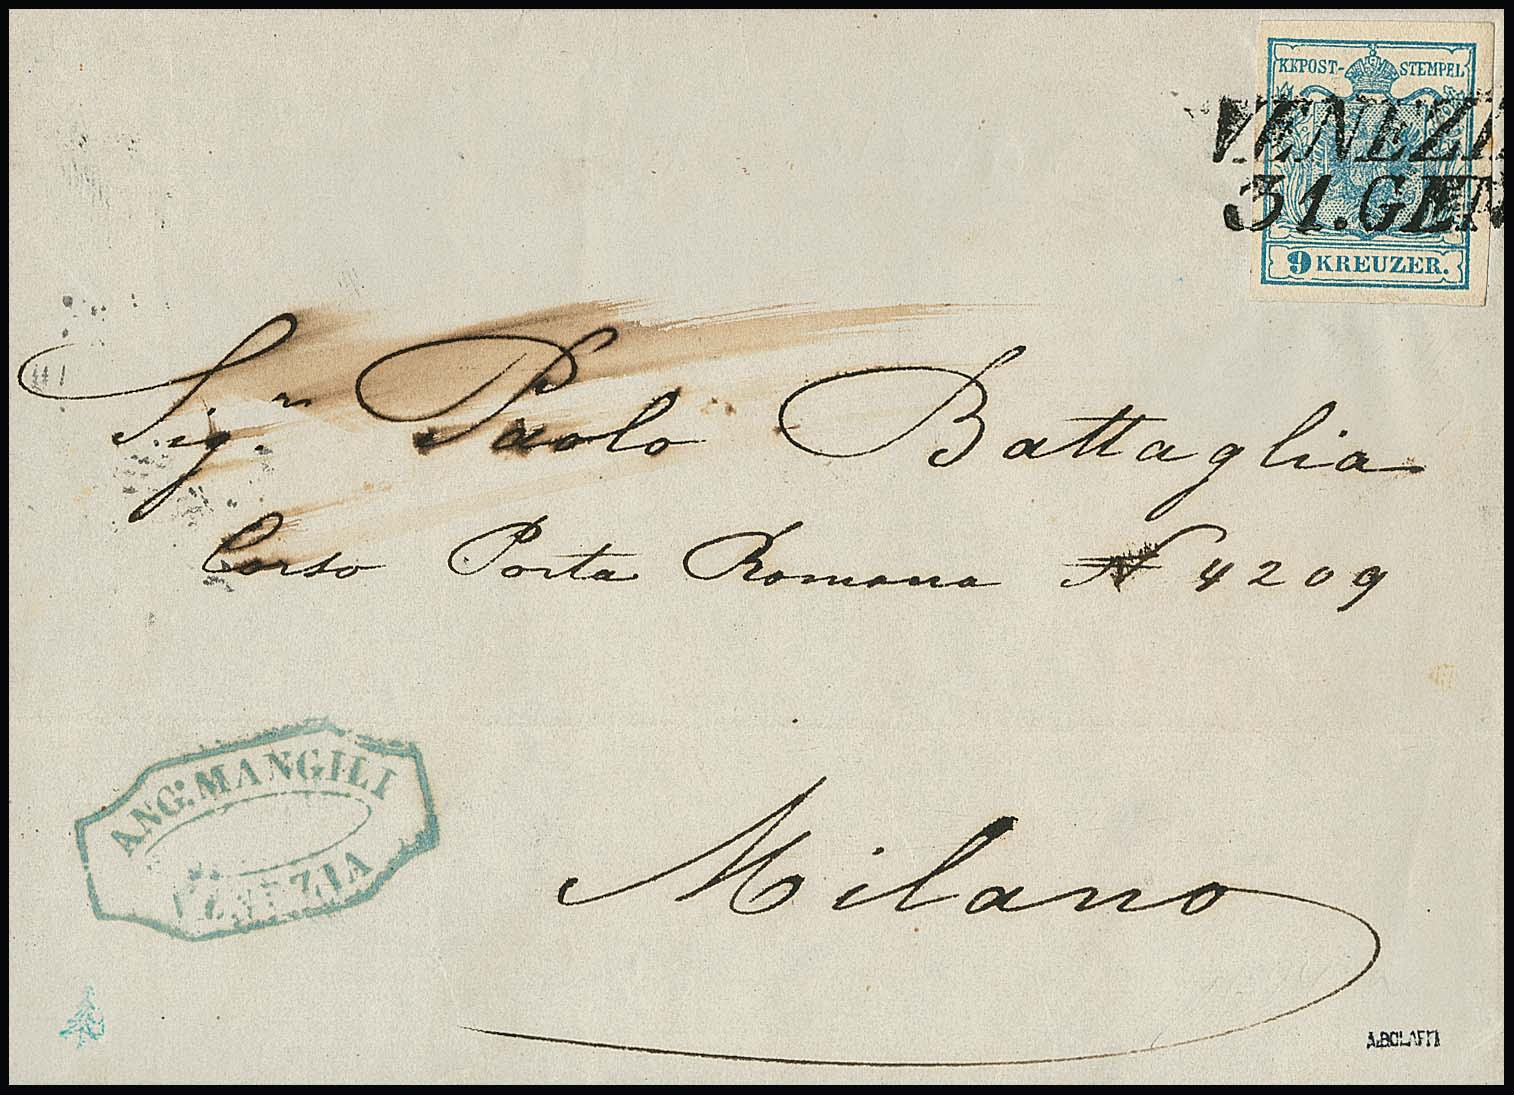 KKPOST- STEMPEL
VENEZI
31. GEN
9 KREUZER.
Sigr. Paolo Battaglia
Corso Porta Romana N 4209
ANG: MANGILI
VENEZIA
Milano
A.BOLAFFI